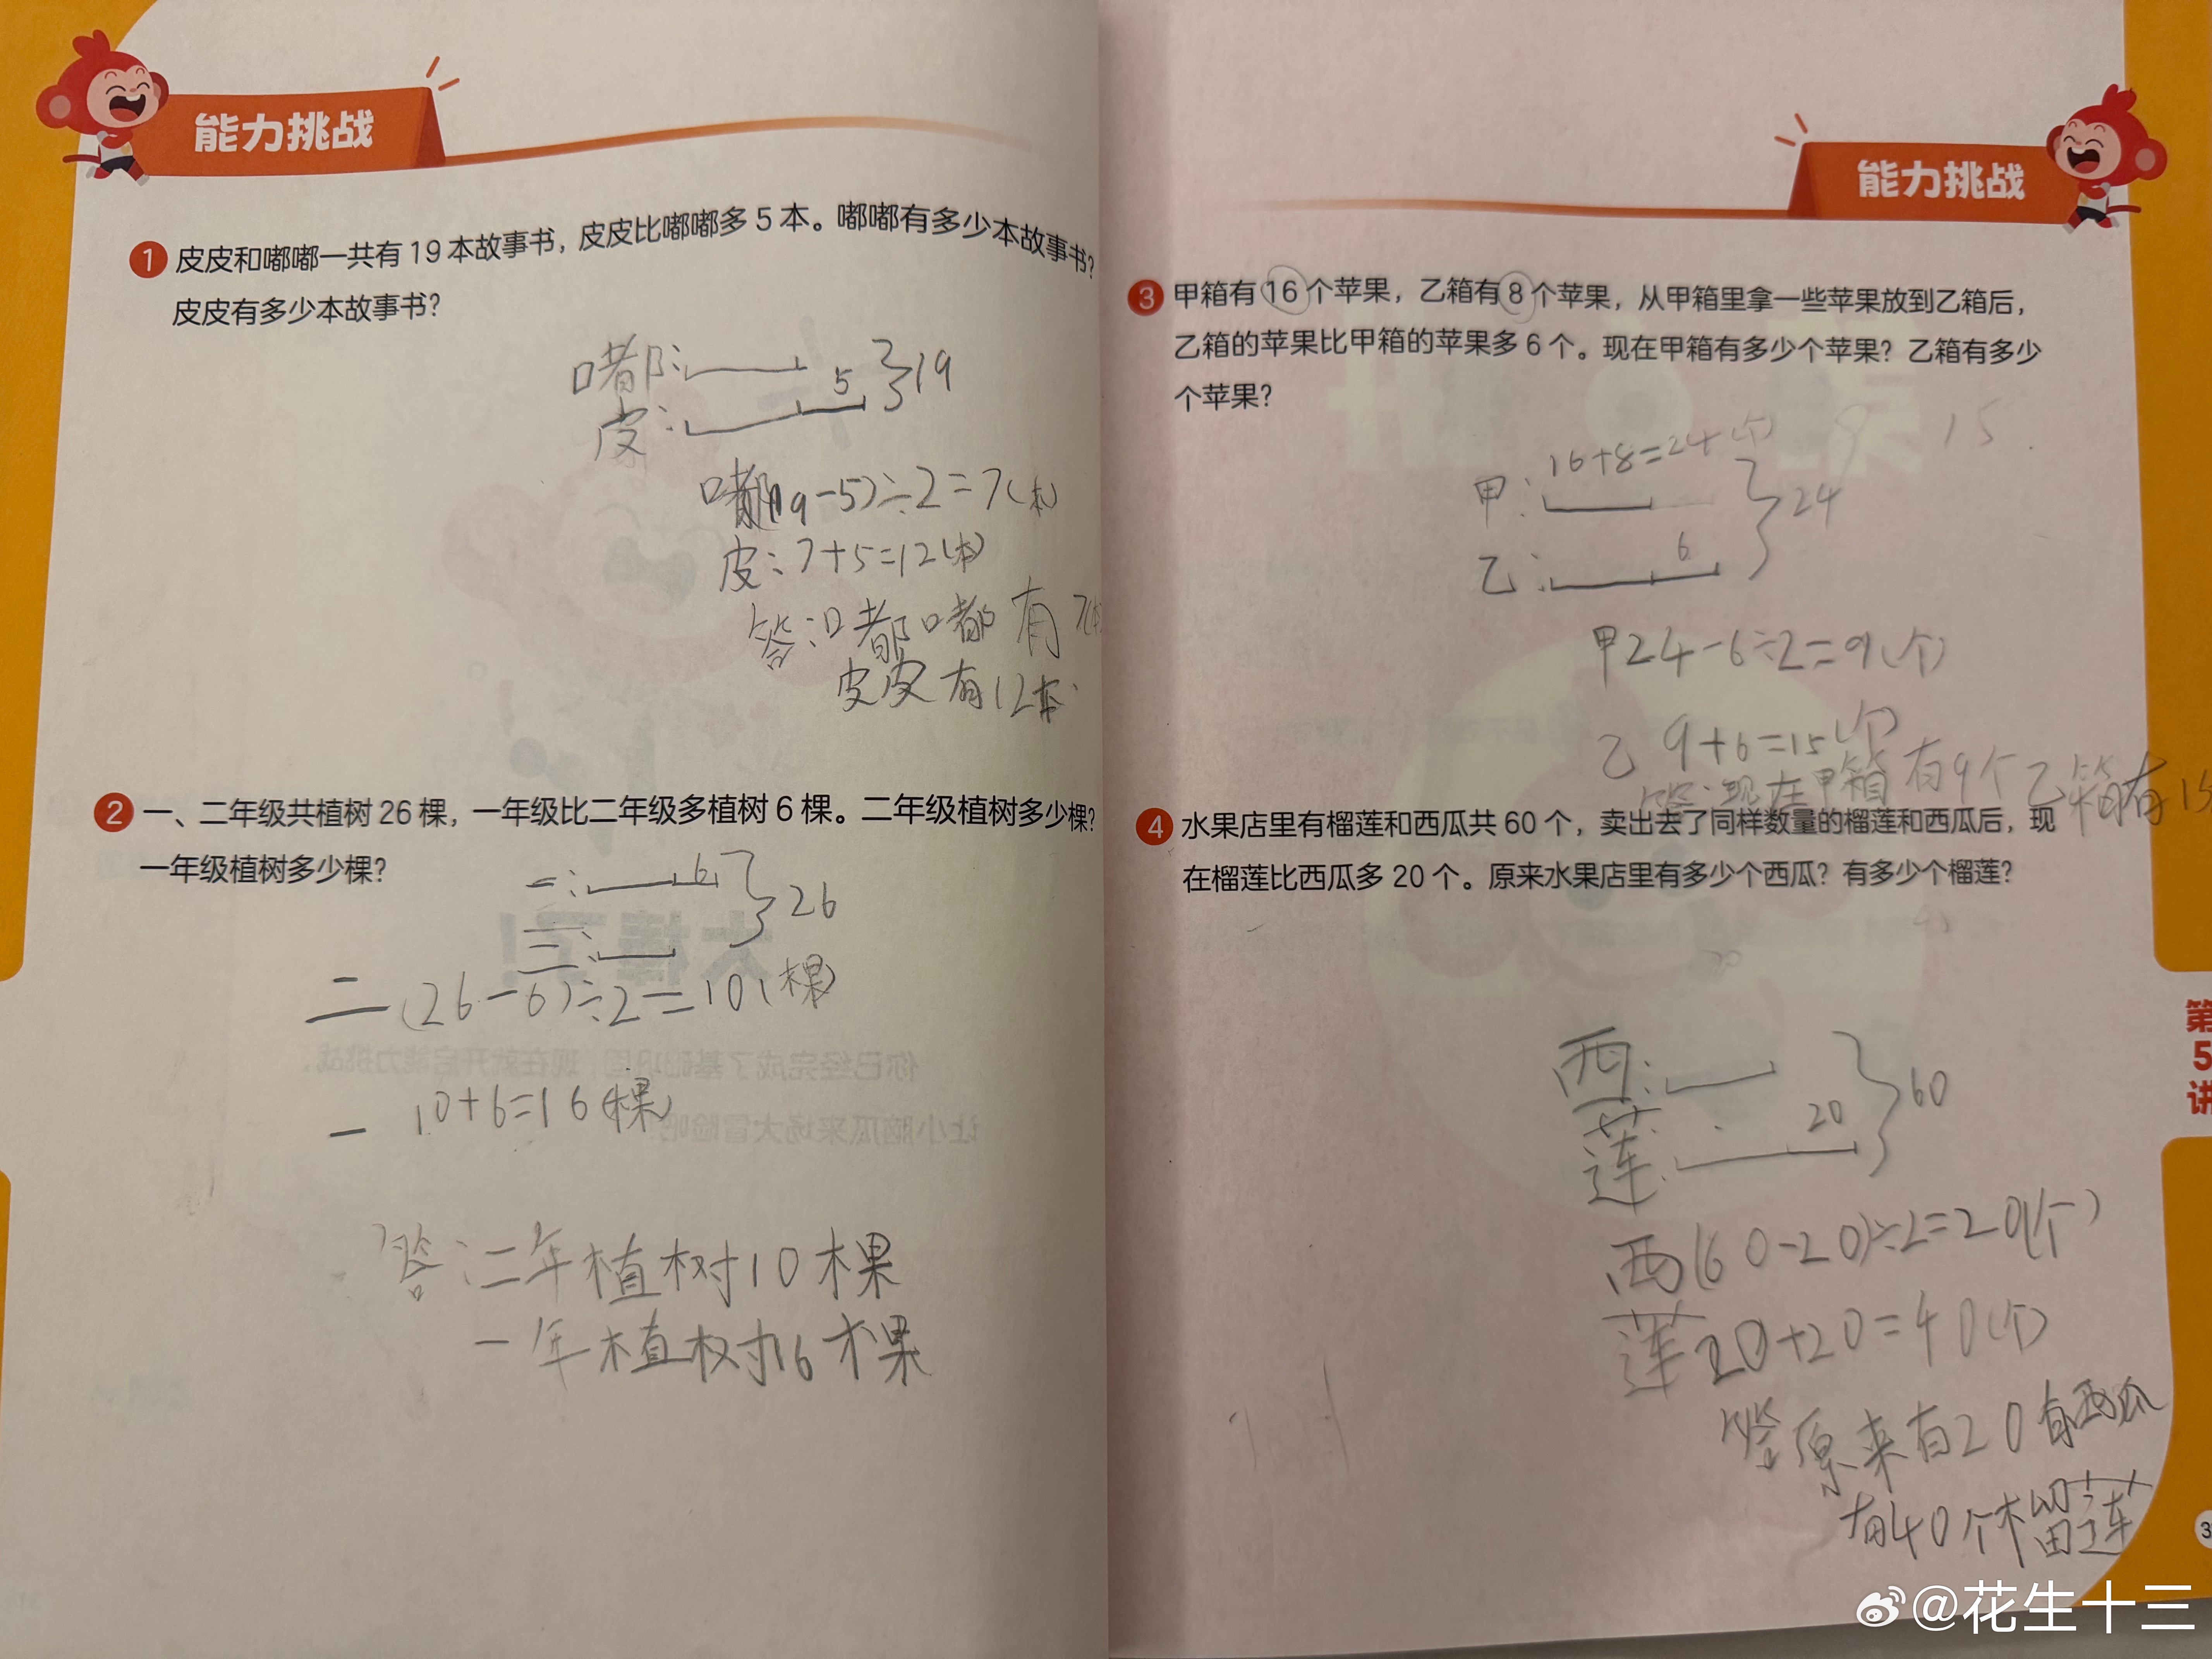 能力挑战
1 皮皮和嘟嘟一共有19本故事书，皮皮比嘟嘟多5本。嘟嘟有多少本故事书？
皮皮有多少本故事书？
嘟：
5
19
皮：
嘟(19-5)÷2=7(本)
皮：7+5=12(本)
答：嘟嘟有7(本
皮皮有12本
2 一、二年级共植树26棵，一年级比二年级多植树6棵。二年级植树多少棵？
一年级植树多少棵？
一：
6
26
二：
二(26-6)÷2=10(棵)
一 10+6=16(棵)
答：二年植树10棵
一年植树16棵
能力挑战
3 甲箱有16个苹果，乙箱有8个苹果，从甲箱里拿一些苹果放到乙箱后，
乙箱的苹果比甲箱的苹果多6个。现在甲箱有多少个苹果？乙箱有多少
个苹果？
9 15
16+8=24(个)
甲：
24
乙：
6
甲24-6÷2=9(个)
乙 9+6=15(个)
答：现在甲箱有9个乙箱有15
4 水果店里有榴莲和西瓜共60个，卖出去了同样数量的榴莲和西瓜后，现
在榴莲比西瓜多20个。原来水果店里有多少个西瓜？有多少个榴莲？
西：
60
莲：
20
西(60-20)÷2=20(个)
莲20+20=40(个)
答原来有20有西瓜
有40个榴莲
第
5
讲
3
@花生十三